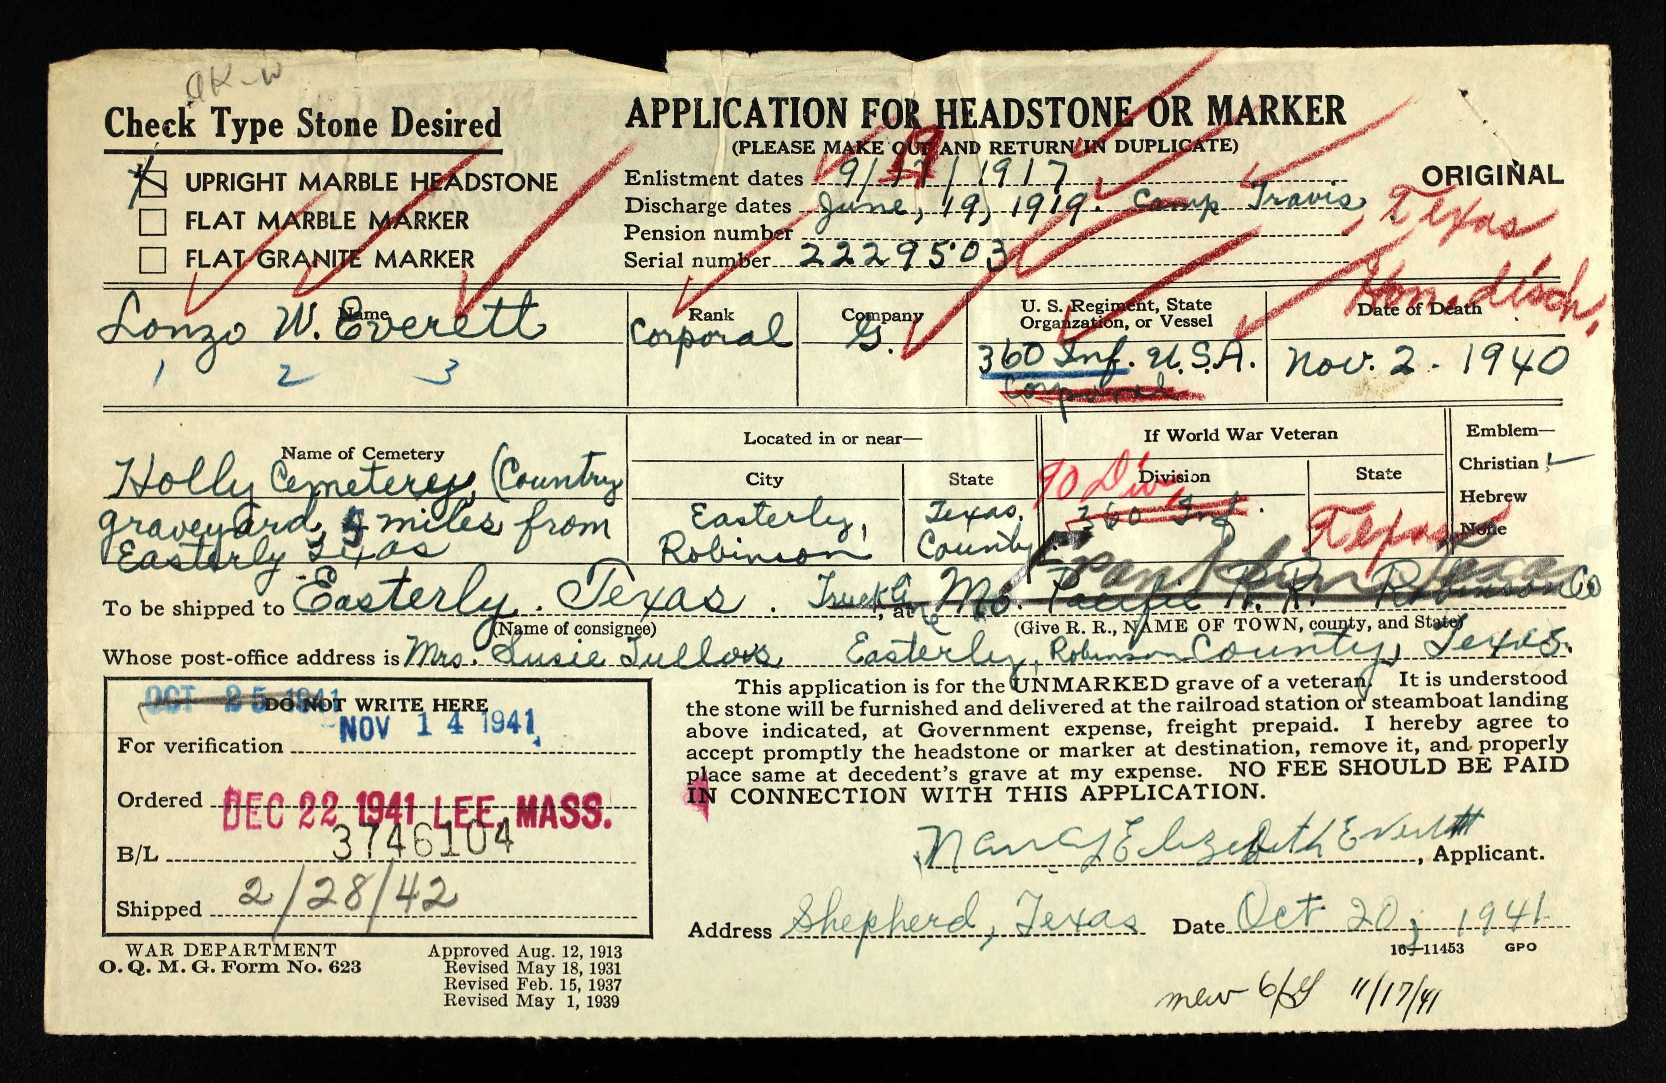 OK-W
Check Type Stone Desired
UPRIGHT MARBLE HEADSTONE
FLAT MARBLE MARKER
FLAT GRANITE MARKER
APPLICATION FOR HEADSTONE OR MARKER
(PLEASE MAKE OUT AND RETURN IN DUPLICATE)
ORIGINAL
Enlistment dates 9/19/1917
Discharge dates June, 19, 1919. Camp Travis, Texas
Pension number
Serial number 2229503
Hon. disch.
Name
Lonzo W. Everett
1 2 3
Rank
Corporal
Company
G.
U. S. Regiment, State
Organzation, or Vessel
360 Inf. U.S.A.
Corporal
Date of Death
Nov. 2. 1940
Name of Cemetery
Holly Cemeterey, (Country
graveyard, 5 miles from
Easterly Texas
Located in or near—
City
Easterly,
Robinson
State
Texas.
County
If World War Veteran
Division
90 Div
360 Inf.
State
Texas
Emblem—
Christian ✓
Hebrew
None
Franklin Texas
To be shipped to Easterly. Texas. , at Mo. Pacific R. R. Robinson Co
(Name of consignee)
(Give R. R., NAME OF TOWN, county, and State)
Whose post-office address is Mrs. Susie Tullos Easterly, Robinson County, Texas.
OCT 25 1941
DO NOT WRITE HERE
NOV 14 1941
For verification
Ordered DEC 22 1941 LEE, MASS.
B/L 3746104
Shipped 2/28/42
This application is for the UNMARKED grave of a veteran. It is understood
the stone will be furnished and delivered at the railroad station or steamboat landing
above indicated, at Government expense, freight prepaid. I hereby agree to
accept promptly the headstone or marker at destination, remove it, and properly
place same at decedent's grave at my expense. NO FEE SHOULD BE PAID
IN CONNECTION WITH THIS APPLICATION.
Nancy Elizabeth Everett, Applicant.
Address Shepherd, Texas Date Oct 20, 1941
16—11453 GPO
WAR DEPARTMENT
O. Q. M. G. Form No. 623
Approved Aug. 12, 1913
Revised May 18, 1931
Revised Feb. 15, 1937
Revised May 1, 1939
11/17/41